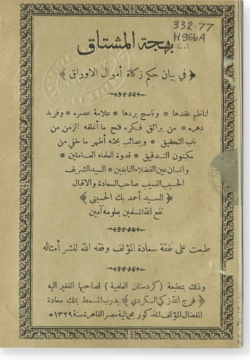 332.77
H96bA
c.1
بهجة المشتاق
﴿ في بيان حكم زكاة أموال الأوراق ﴾
لناظم عقدها * وناسج بردها * علامة عصره * وفريد
دهره * من براثق فكره فتح ما أغلقه الزمن من
باب التحقيق * وبصائب بحثه أظهر ما خفي من
مكنون التدقيق * قدوة العلماء العاملين *
وانسان عين الفضلاء النابغين * السيد الشريف
الحسيب النسيب صاحب السعادة والاقبال
﴿ السيد أحمد بك الحسيني ﴾
نفع الله المسلمين بعلومه آمين
طبعت على نفقة سعادة المؤلف وفقه الله لنشر أمثاله
وذلك بمطبعة ( كردستان العلمية ) لصاحبها الفقير اليه
﴿ فرج الله زكي الكردي ﴾ بدرب المسمط بملك سعادة
المفضال المؤلف المذكور بجمالية مصر القاهرة سنة ١٣٢٩